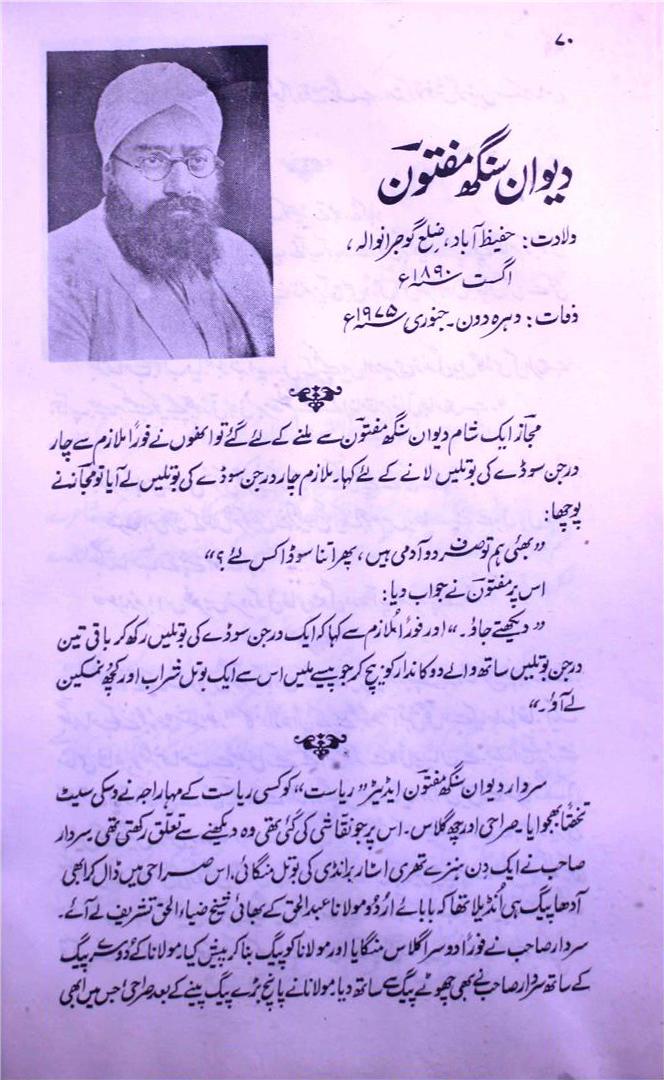 ۷۰
دیوان سنگھ مفتونؔ
ولادت: حفیظ آباد، ضلع گوجرانوالہ،
اگست ۱۸۹۰ء
وفات: دہرہ دون۔ جنوری ۱۹۷۵ء
مجازؔ ایک شام دیوان سنگھ مفتونؔ سے ملنے کے لئے گئے تو انھوں نے فوراً ملازم سے چار
درجن سوڈے کی بوتلیں لانے کے لئے کہا۔ ملازم چار درجن سوڈے کی بوتلیں لے آیا تو مجازؔ نے
پوچھا:
”بھئی ہم تو صرف دو آدمی ہیں، پھر اتنا سوڈا کس لئے؟“
اس پر مفتونؔ نے جواب دیا:
”دیکھتے جاؤ۔“ اور فوراً ملازم سے کہا کہ ایک درجن سوڈے کی بوتلیں رکھ کر باقی تین
درجن بوتلیں ساتھ والے دوکاندار کو بیچ کر جو پیسے ملیں اس سے ایک بوتل شراب اور کچھ نمکین
لے آؤ۔“
سردار دیوان سنگھ مفتونؔ ایڈیٹر ”ریاست“ کو کسی ریاست کے مہاراجہ نے وسکی سیٹ
تحفتاً بھجوایا۔ صراحی اور چھ گلاس۔ اس پر جو نقاشی کی گئی تھی وہ دیکھنے سے تعلق رکھتی تھی۔ سردار
صاحب نے ایک دن ہنزے تھری اسٹار برانڈی کی بوتل منگائی، اس صراحی میں ڈال کر ابھی
آدھا پیگ ہی انڈیلا تھا کہ بابائے اردو مولانا عبدالحق کے بھائی شیخ ضیاء الحق تشریف لے آئے۔
سردار صاحب نے فوراً دوسرا گلاس منگایا اور مولانا کو پیگ بنا کر پیش کیا۔ مولانا کے دوسرے پیگ
کے ساتھ سردار صاحب نے بھی چھوٹے پیگ سے ساتھ دیا۔ مولانا نے پانچ بڑے پیگ پینے کے بعد صراحی جس میں ابھی